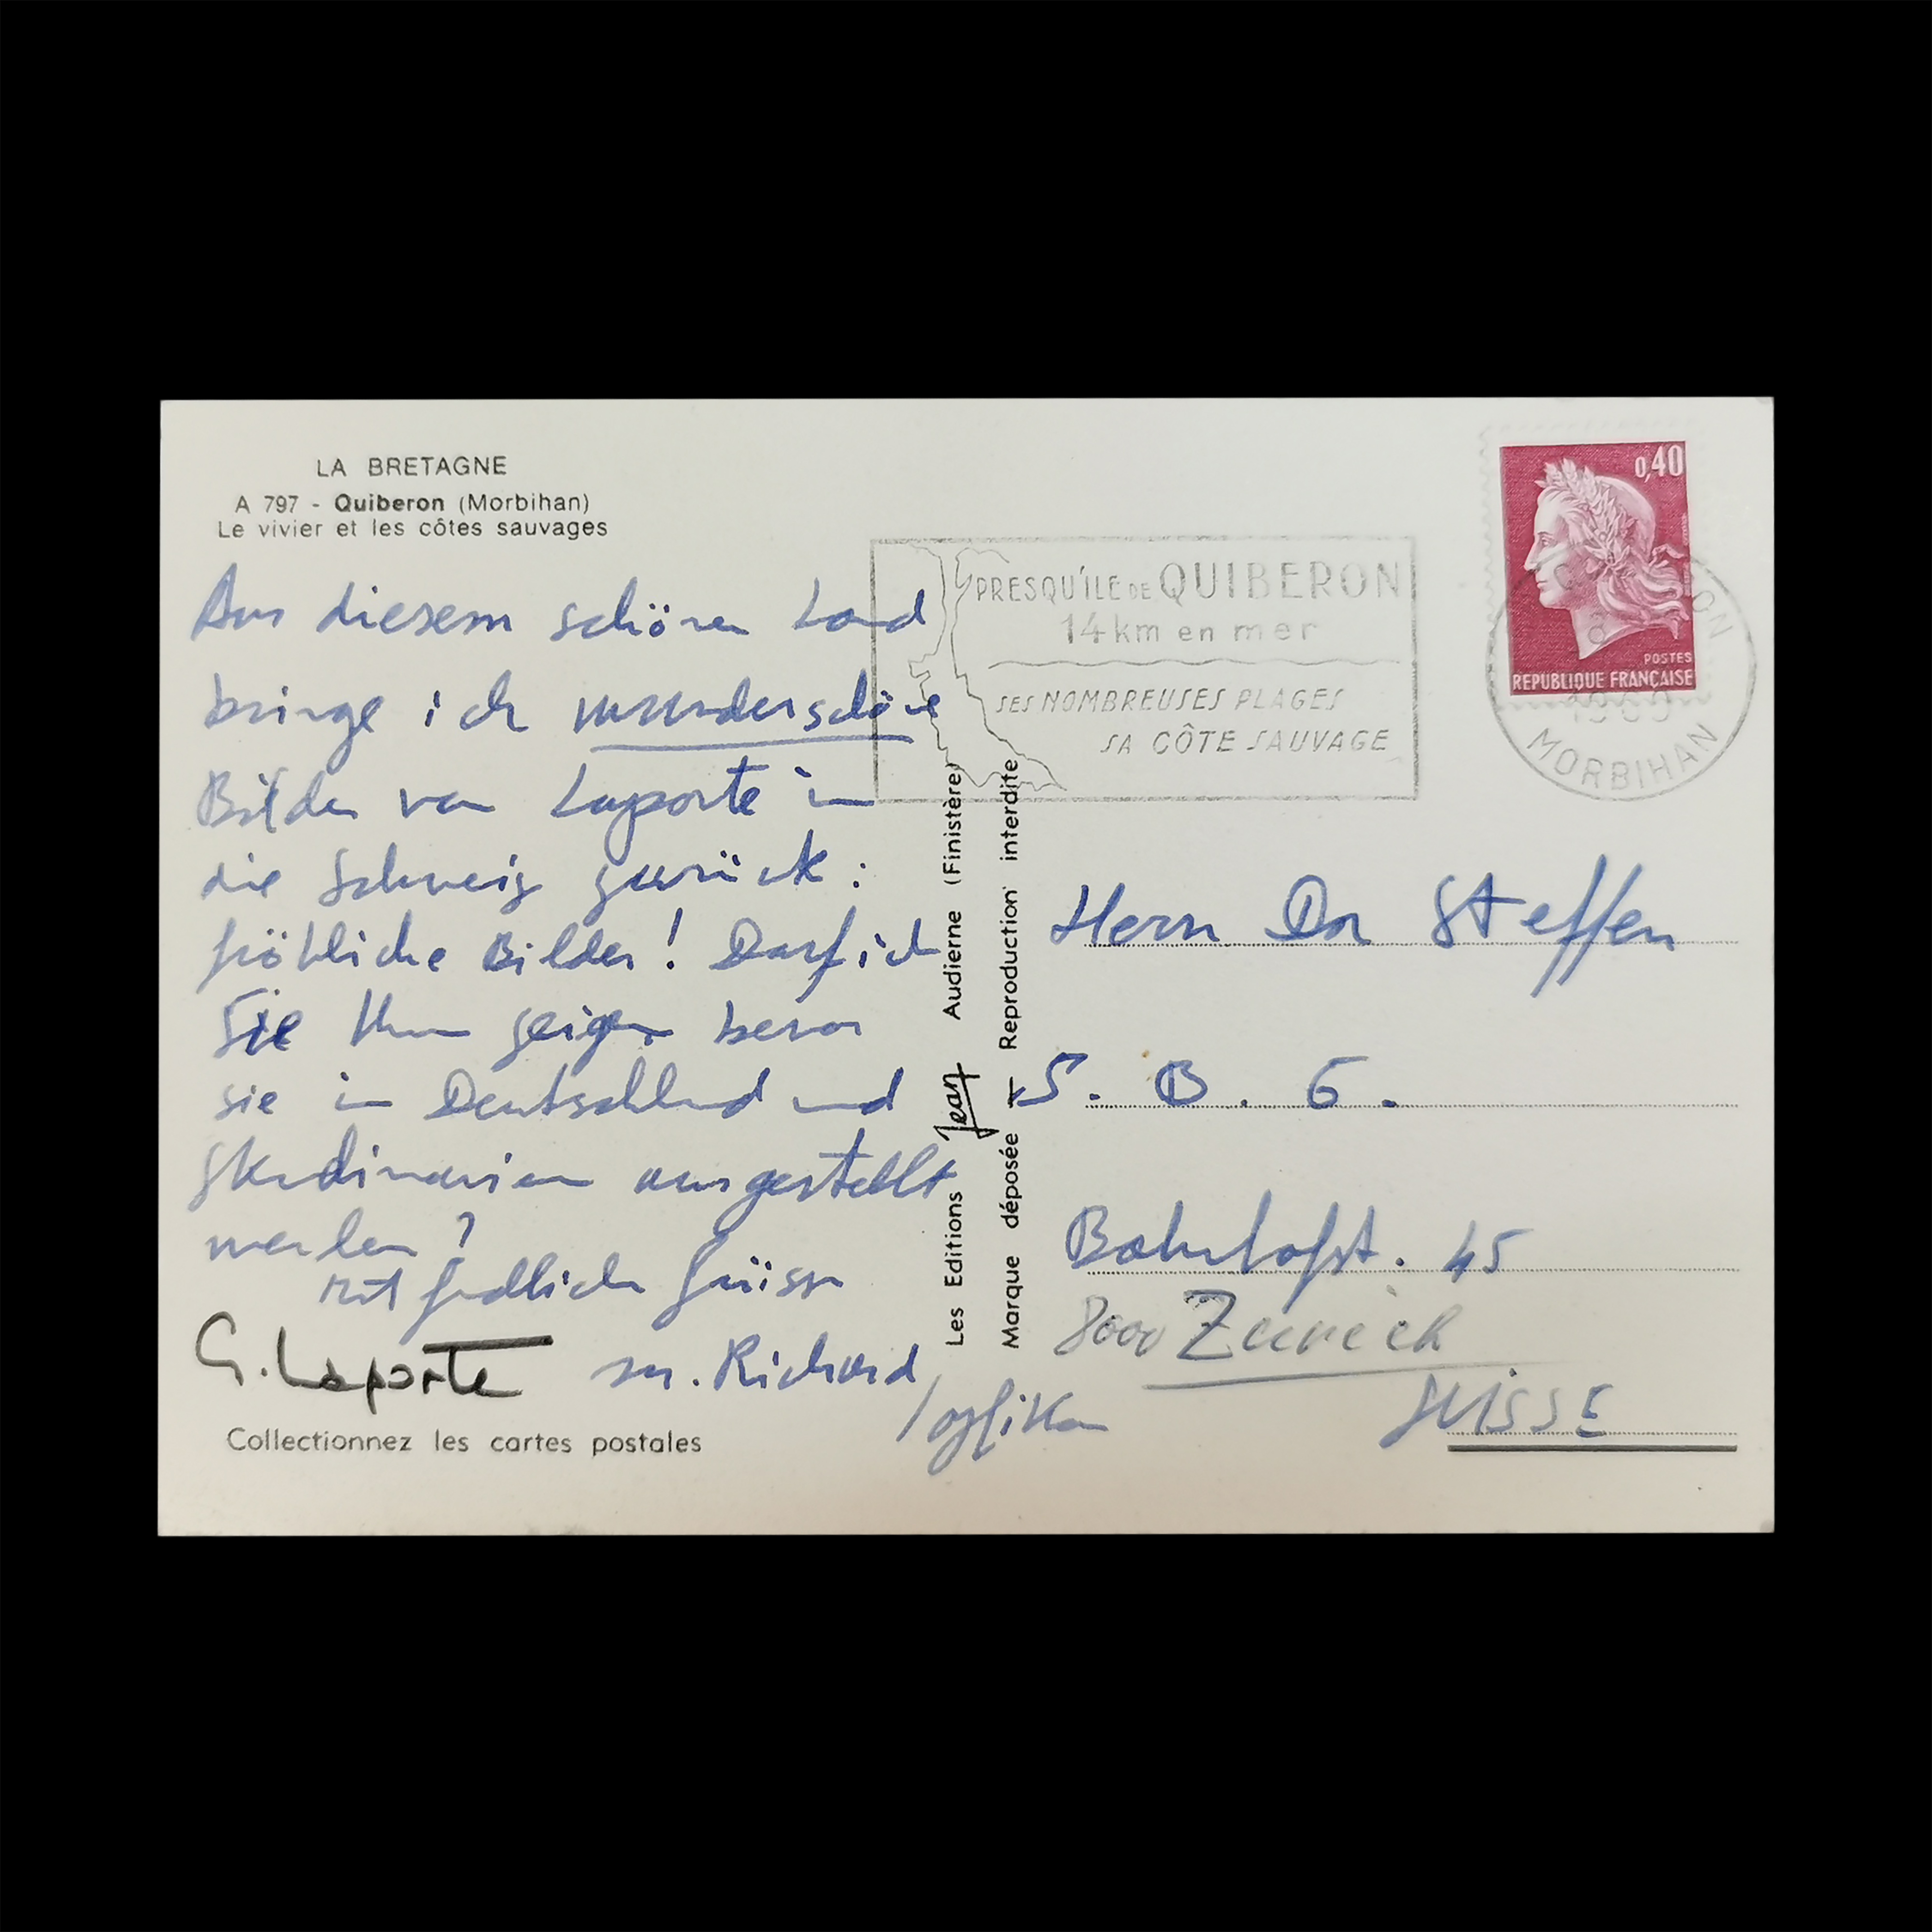 LA BRETAGNE
A 797 - Quiberon (Morbihan)
Le vivier et les côtes sauvages
Aus diesem schönen Land
bringe ich wunderschöne
Bilder von Laporte in
die Schweiz zurück :
fröhliche Bilder ! Darf ich
Sie Ihnen zeigen bevor
sie in Deutschland und
Skandinavien ausgestellt
werden ?
Mit freundlichen Grüssen
G. Laporte
M. Richard
/Opfikon
Collectionnez les cartes postales
Les Editions Jean Audierne (Finistère)
Marque déposée - Reproduction interdite
PRESQU'ILE DE QUIBERON
14 km en mer
SES NOMBREUSES PLAGES
SA CÔTE SAUVAGE
0,40
POSTES
REPUBLIQUE FRANÇAISE
MORBIHAN
Herrn Dr Steffen
S. B. G.
Bahnhofst. 45
8000 Zürich
SUISSE